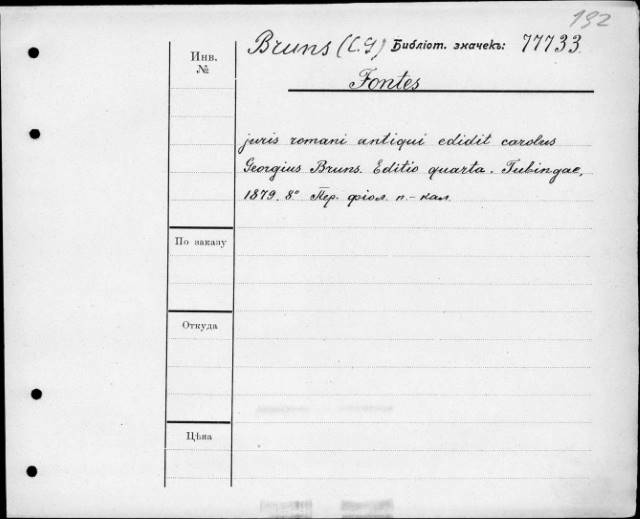 192
Bruns (C.G) Библіот. значекъ: 77733.
Инв.
№
Fontes
juris romani antiqui edidit carolus
Georgius Bruns. Editio quarta. Tubingae,
1879. 8° Пер. фіол. п.-кал.
По заказу
Откуда
Цѣна